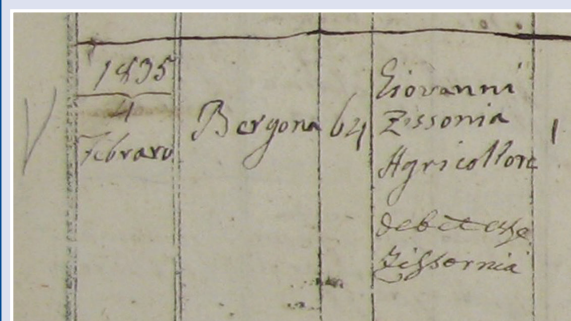 1835
4
Febraro
Bergona
64
Giovanni
Zissonia
Agricoltore
debet esse
Zissornia
1